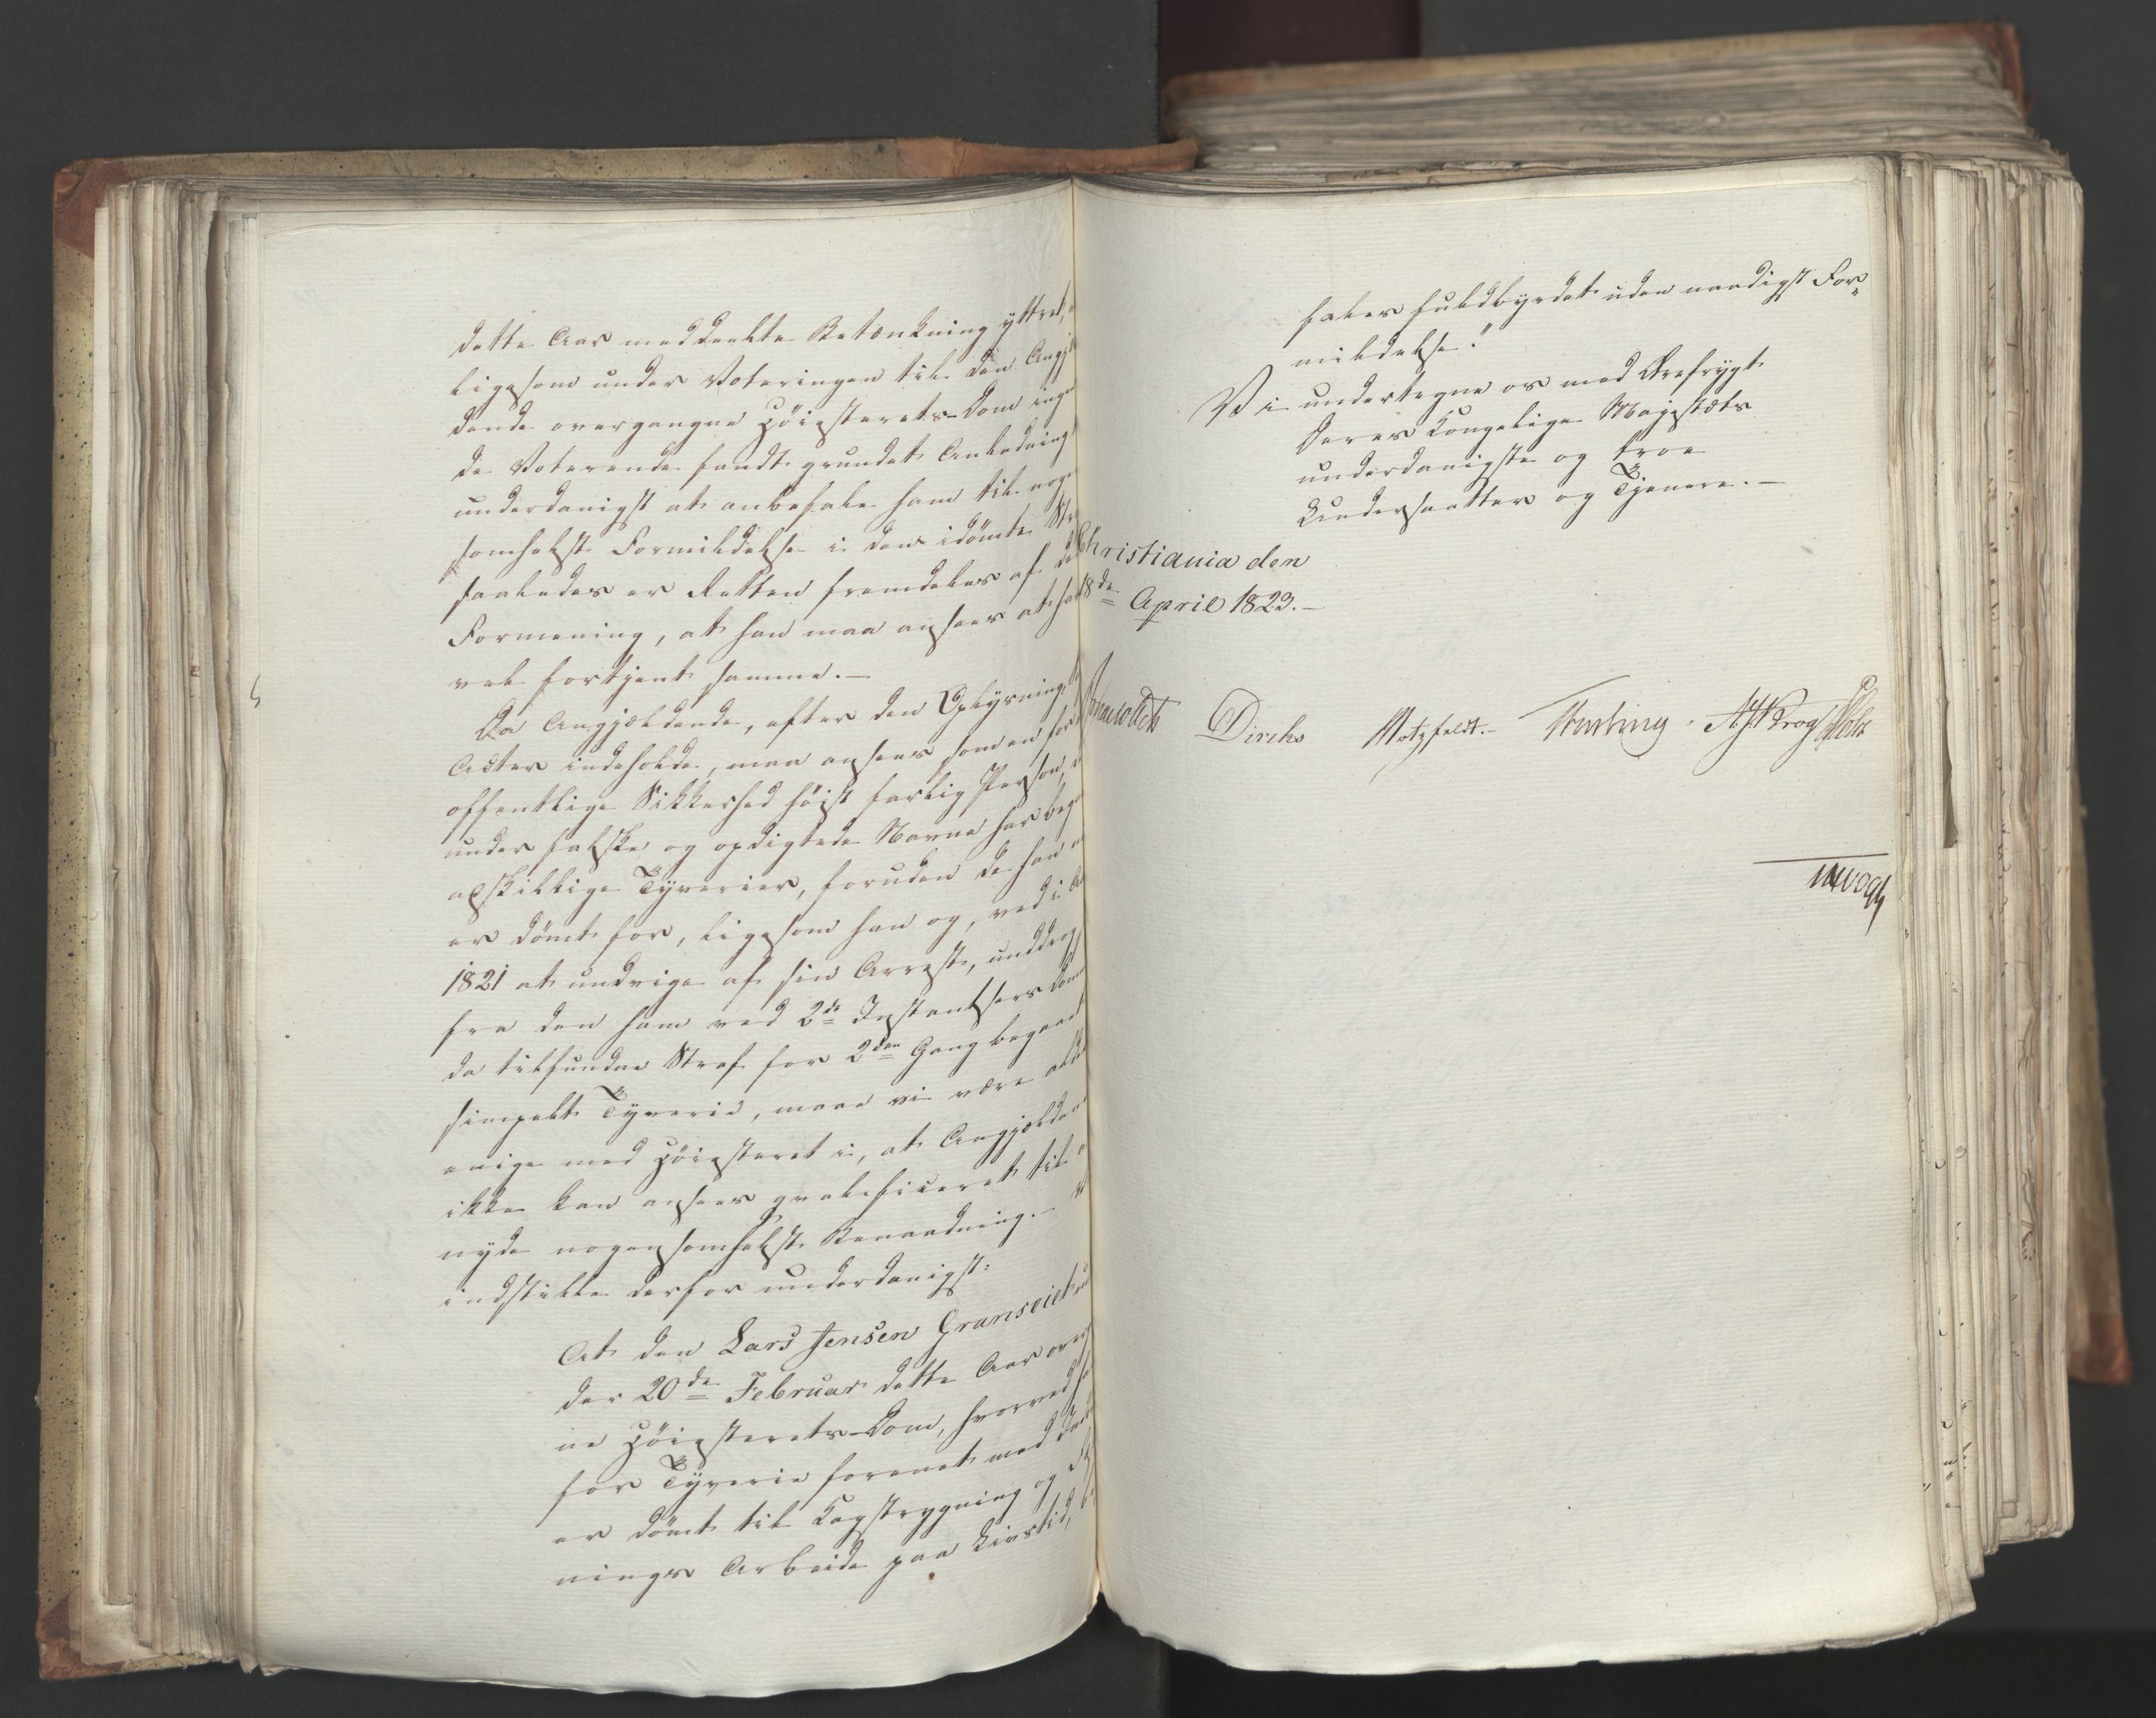 dette Aar meddeelte Betænkning yttret,
ligesom under Voteringen til den Angjel
dende overgangne Höiesterets-Dom inge
de Voterende fandt grundet Anledning
underdanigst at anbefale ham til noge
somhelst Formildelse i den idömte Str
saaledes er Retten fremdeles af de
Formening, at han maa ansees at ha
vel fortjent samme.-
Da Angjældende, efter den Oplysning,
Acter indeholde, maa ansees som en for
offentlige Sikkerhed höist farlig Person,
under falske og opdigtede Navne har beg
adskillige Tÿverier, foruden de han
er dömt for, ligesom han og, ved i
1821 at undvige af sin Arrest, unddrog
fra den ham ved 2de Instantsers Dom
da tilfundne Straf for 2den Gang begaaet
simpelt Tÿverie, maae vi være
enige med Höiesteret i, at Angjælden
ikke kan ansees qvalificeret til
nyde nogensomhelst Benaadning.-
indstille derfor underdanigst:
At den Lars Jensen Granseiet
der 20de Februar dette Aar over
ne Höiesterets-Dom, hvorved
for Tÿverie forenet med
er dömt til Kagstrygning og
nings Arbeide paa Livstid,
fales fuldbyrdet uden naadigst For-
mildelse."
Vi undertegne os med Ærefrygt
Deres Kongelige Majestæts
underdanigste og troe
Undersaatter og Tjenere.-
Christiania den
18de April 1823.-
Diriks Motzfeldt.- A Krog Holst
Vogt